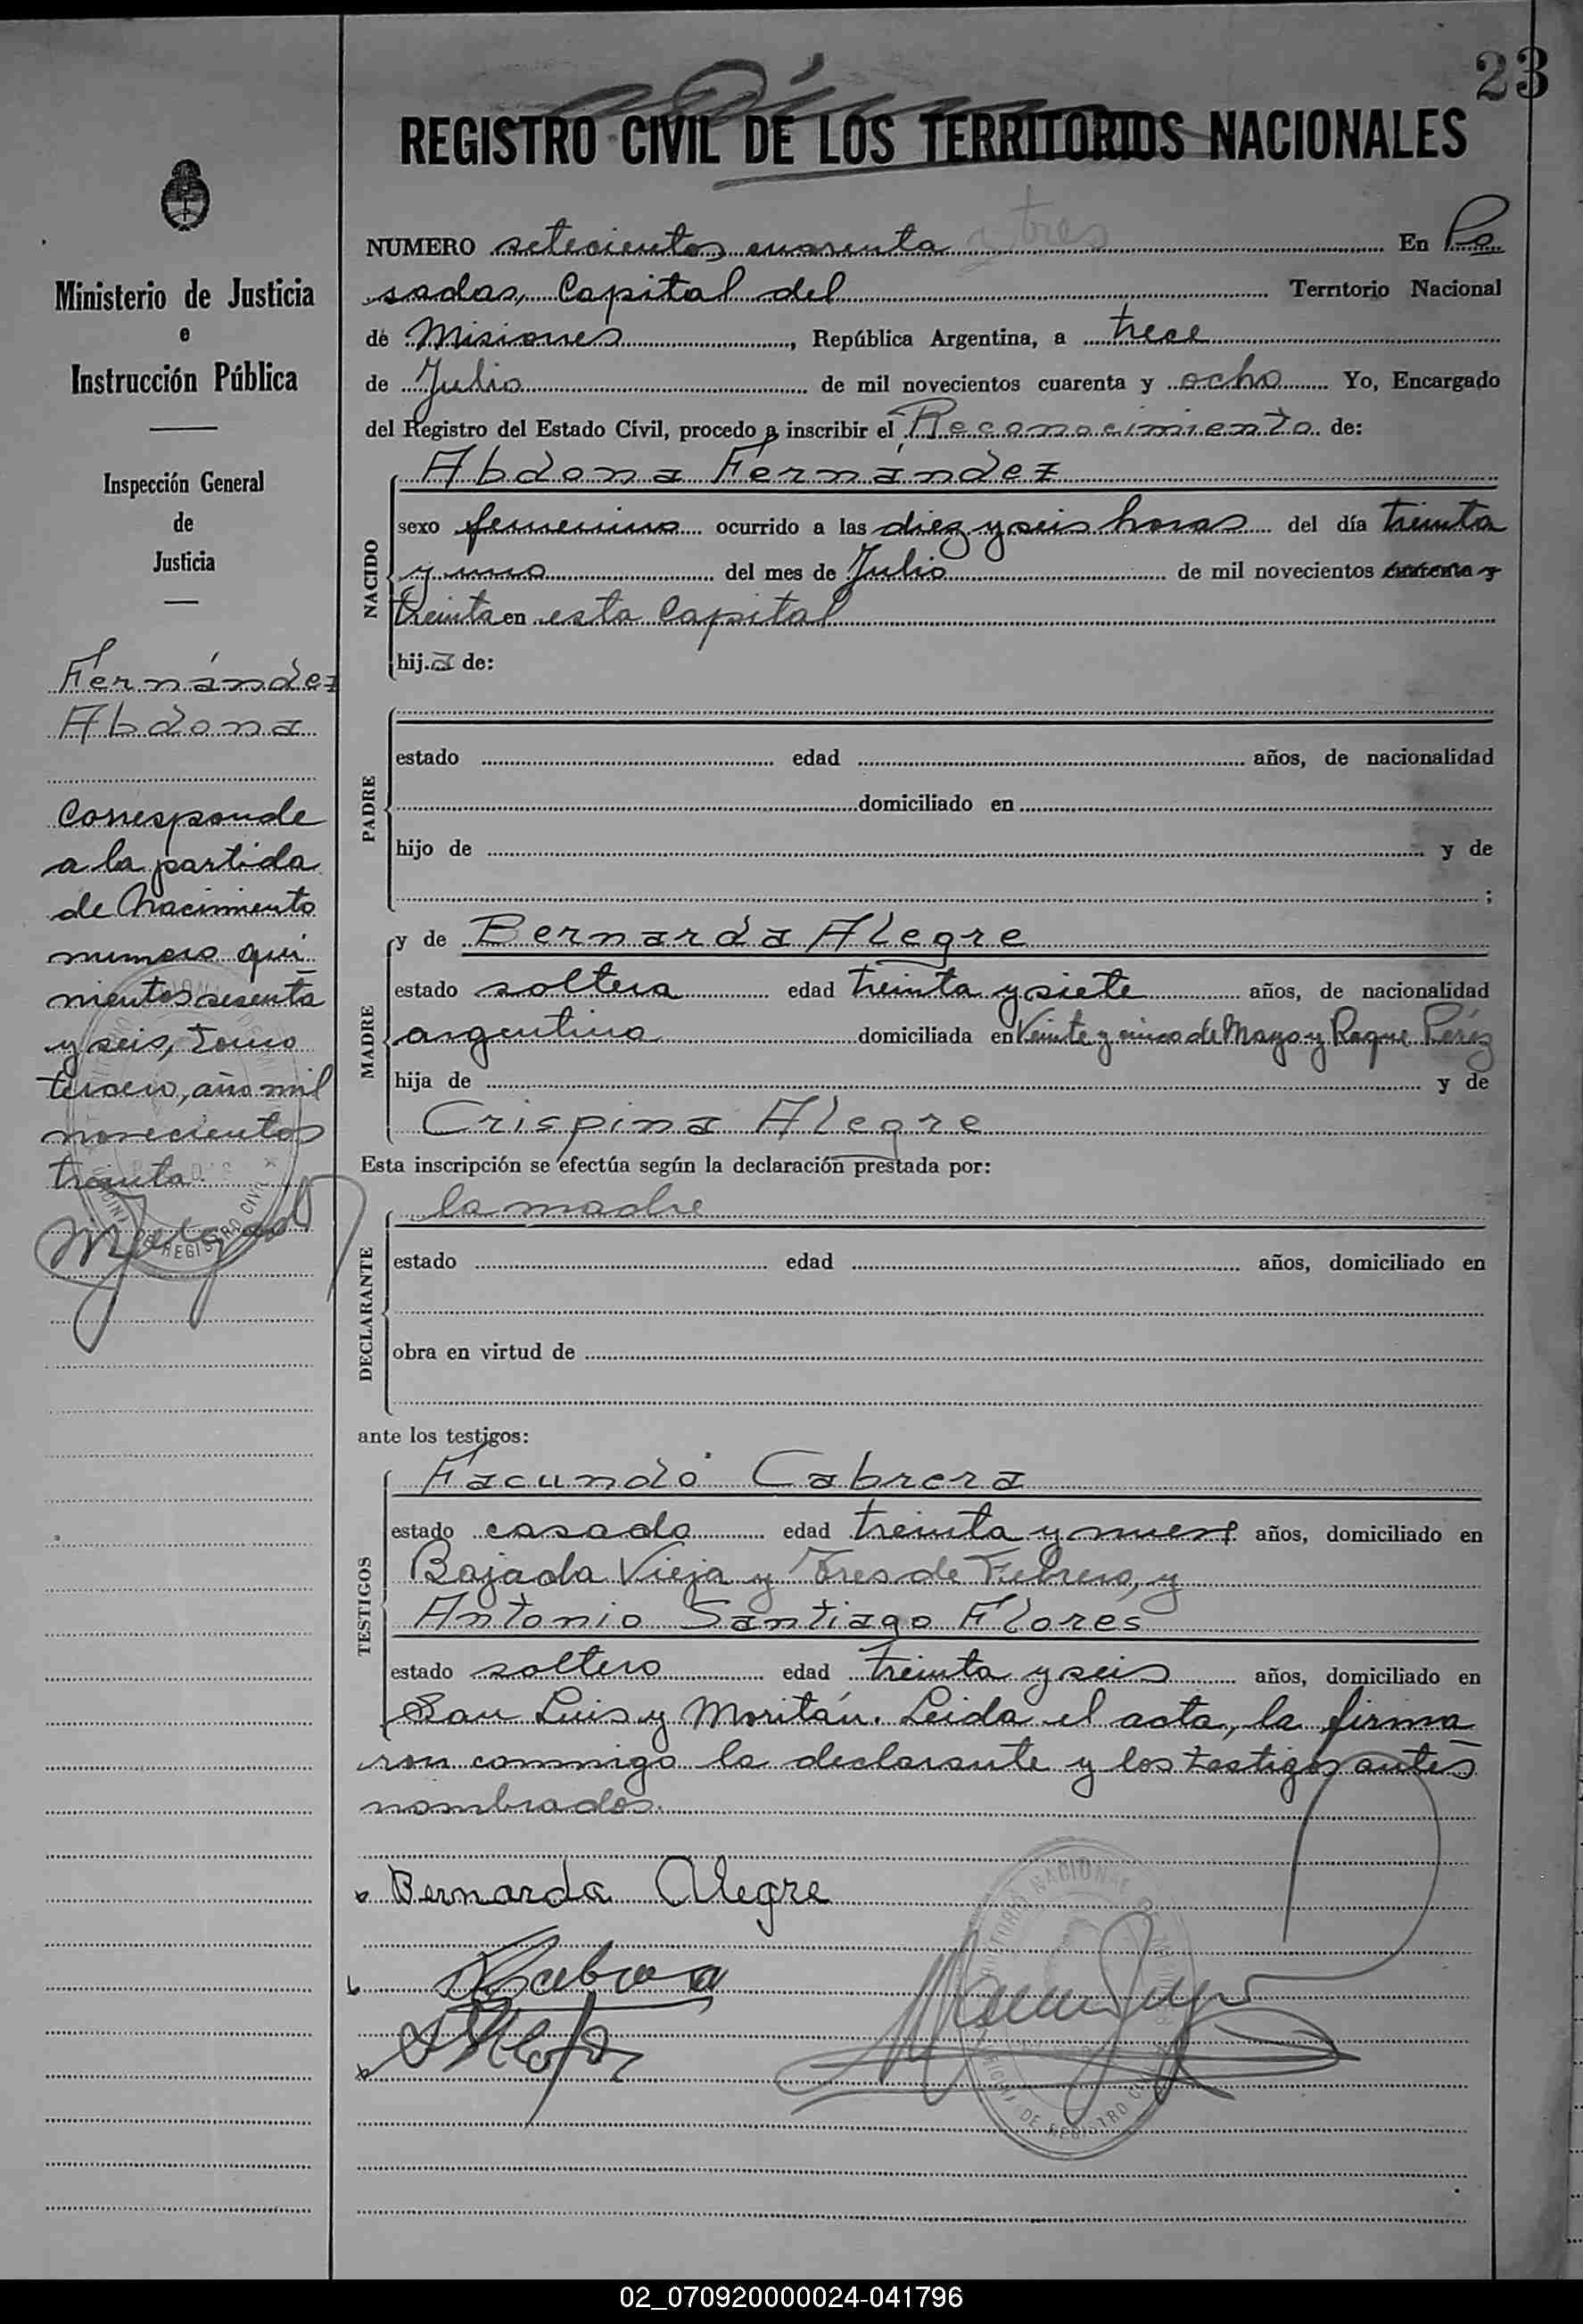 23
REGISTRO CIVIL DE LOS TERRITORIOS NACIONALES
Ministerio de Justicia
e
Instrucción Pública
Inspección General
de
Justicia
Fernández
Abdona
Corresponde
a la partida
de Nacimiento
numero qui
nientos sesenta
y seis, tomo
tercero, año mil
novecientos
treinta.
NUMERO setecientos cuarenta y tres En Po
sadas, Capital del Territorio Nacional
de Misiones, República Argentina, a trece
de Julio de mil novecientos cuarenta y ocho Yo, Encargado
del Registro del Estado Civil, procedo a inscribir el Reconocimiento de:
NACIDO
Abdona Fernández
sexo femenino ocurrido a las diez y seis horas del día treinta
y uno del mes de Julio de mil novecientos cuarenta y
treinta en esta Capital
hija de:
PADRE
estado edad años, de nacionalidad
domiciliado en
hijo de y de
;
MADRE
y de Bernarda Alegre
estado soltera edad treinta y siete años, de nacionalidad
argentina domiciliada en Veinte y cinco de Mayo y Roque Peréz
hija de y de
Crispina Alegre
Esta inscripción se efectúa según la declaración prestada por:
DECLARANTE
la madre
estado edad años, domiciliado en
obra en virtud de
ante los testigos:
TESTIGOS
Facundo Cabrera
estado casado edad treinta y nueve años, domiciliado en
Bajada Vieja y Tres de Febrero, y
Antonio Santiago Flores
estado soltero edad treinta y seis años, domiciliado en
San Luis y Moritán. Leida el acta, la firma
ron conmigo la declarante y los testigos antes
nombrados.
Bernarda Alegre
02_070920000024-041796